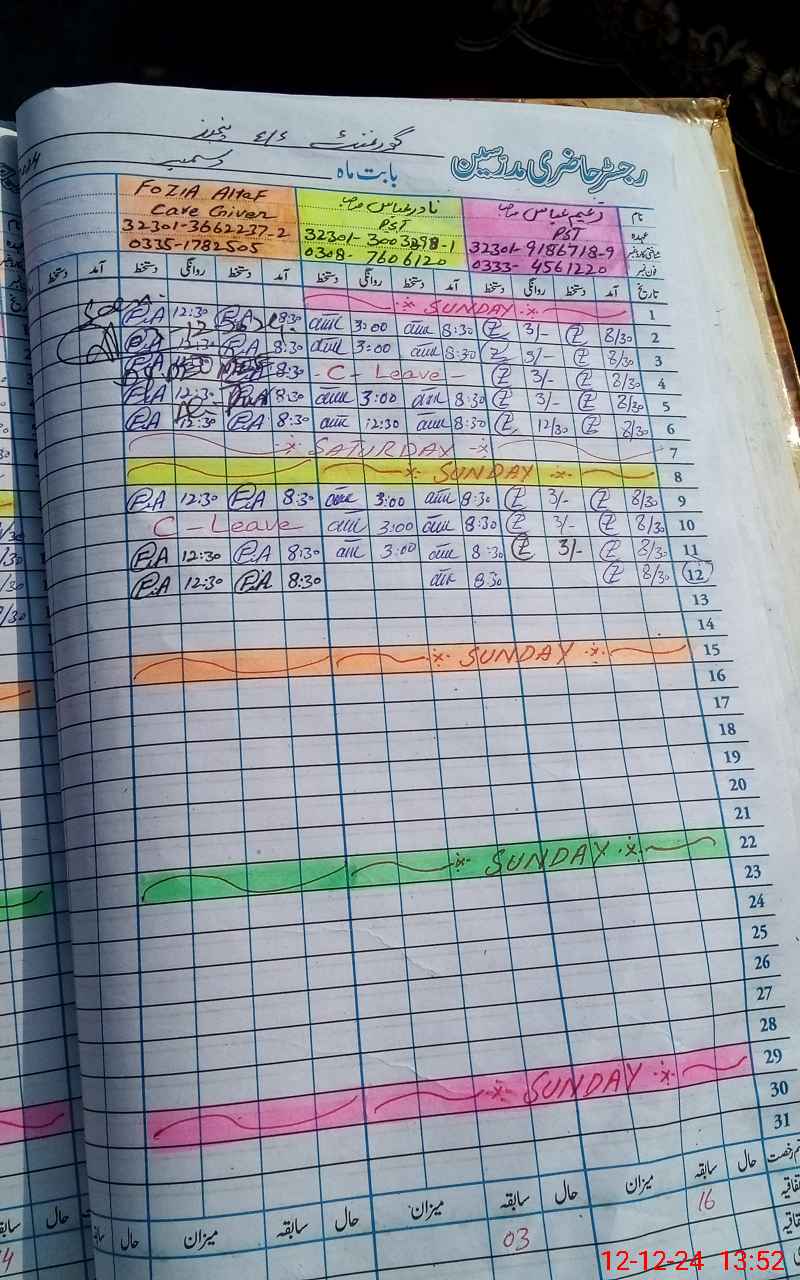 رجسٹر حاضری مدرسین
بابت ماہ دسمبر
نام
FOZIA Altaf
Care Giver
32301-3662237-2
0335-1782505
نادر عباس صاحب
PST
32301-3003898-1
0308-7606120
PST
32301-9186718-9
0333-4561220
عہدہ
فون نمبر
تاریخ آمد دستخط روانگی دستخط آمد دستخط روانگی دستخط آمد دستخط روانگی دستخط آمد دستخط
1 SUNDAY
2 8/30 Z 3/- Z 8:30 3:00 8:30 F.A 12:30 F.A
3 8/30 Z Z 8:30 3:00 8:30 F.A 12:30
4 8/30 Z 3/- Z C-Leave 8:30
5 8/30 Z 3/- Z 8:30 3:00 8:30 12:30 F.A
6 8/30 Z 12/30 Z 8:30 12:30 8:30 F.A 12:30 F.A
7 SATURDAY
8 SUNDAY
9 8/30 Z 3/- Z 8:30 3:00 8:30 F.A 12:30 F.A
10 8/30 Z 3/- Z 8:30 3:00 C-Leave
11 8/30 Z 3/- Z 8:30 3:00 8:30 F.A 12:30 F.A
12 8/30 Z 8:30 8:30 F.A 12:30 F.A
13
14
15 SUNDAY
16
17
18
19
20
21
22 SUNDAY
23
24
25
26
27
28
29 SUNDAY
30
31
حال سابقہ میزان حال سابقہ میزان حال سابقہ میزان حال
16
03
12-12-24 13:52